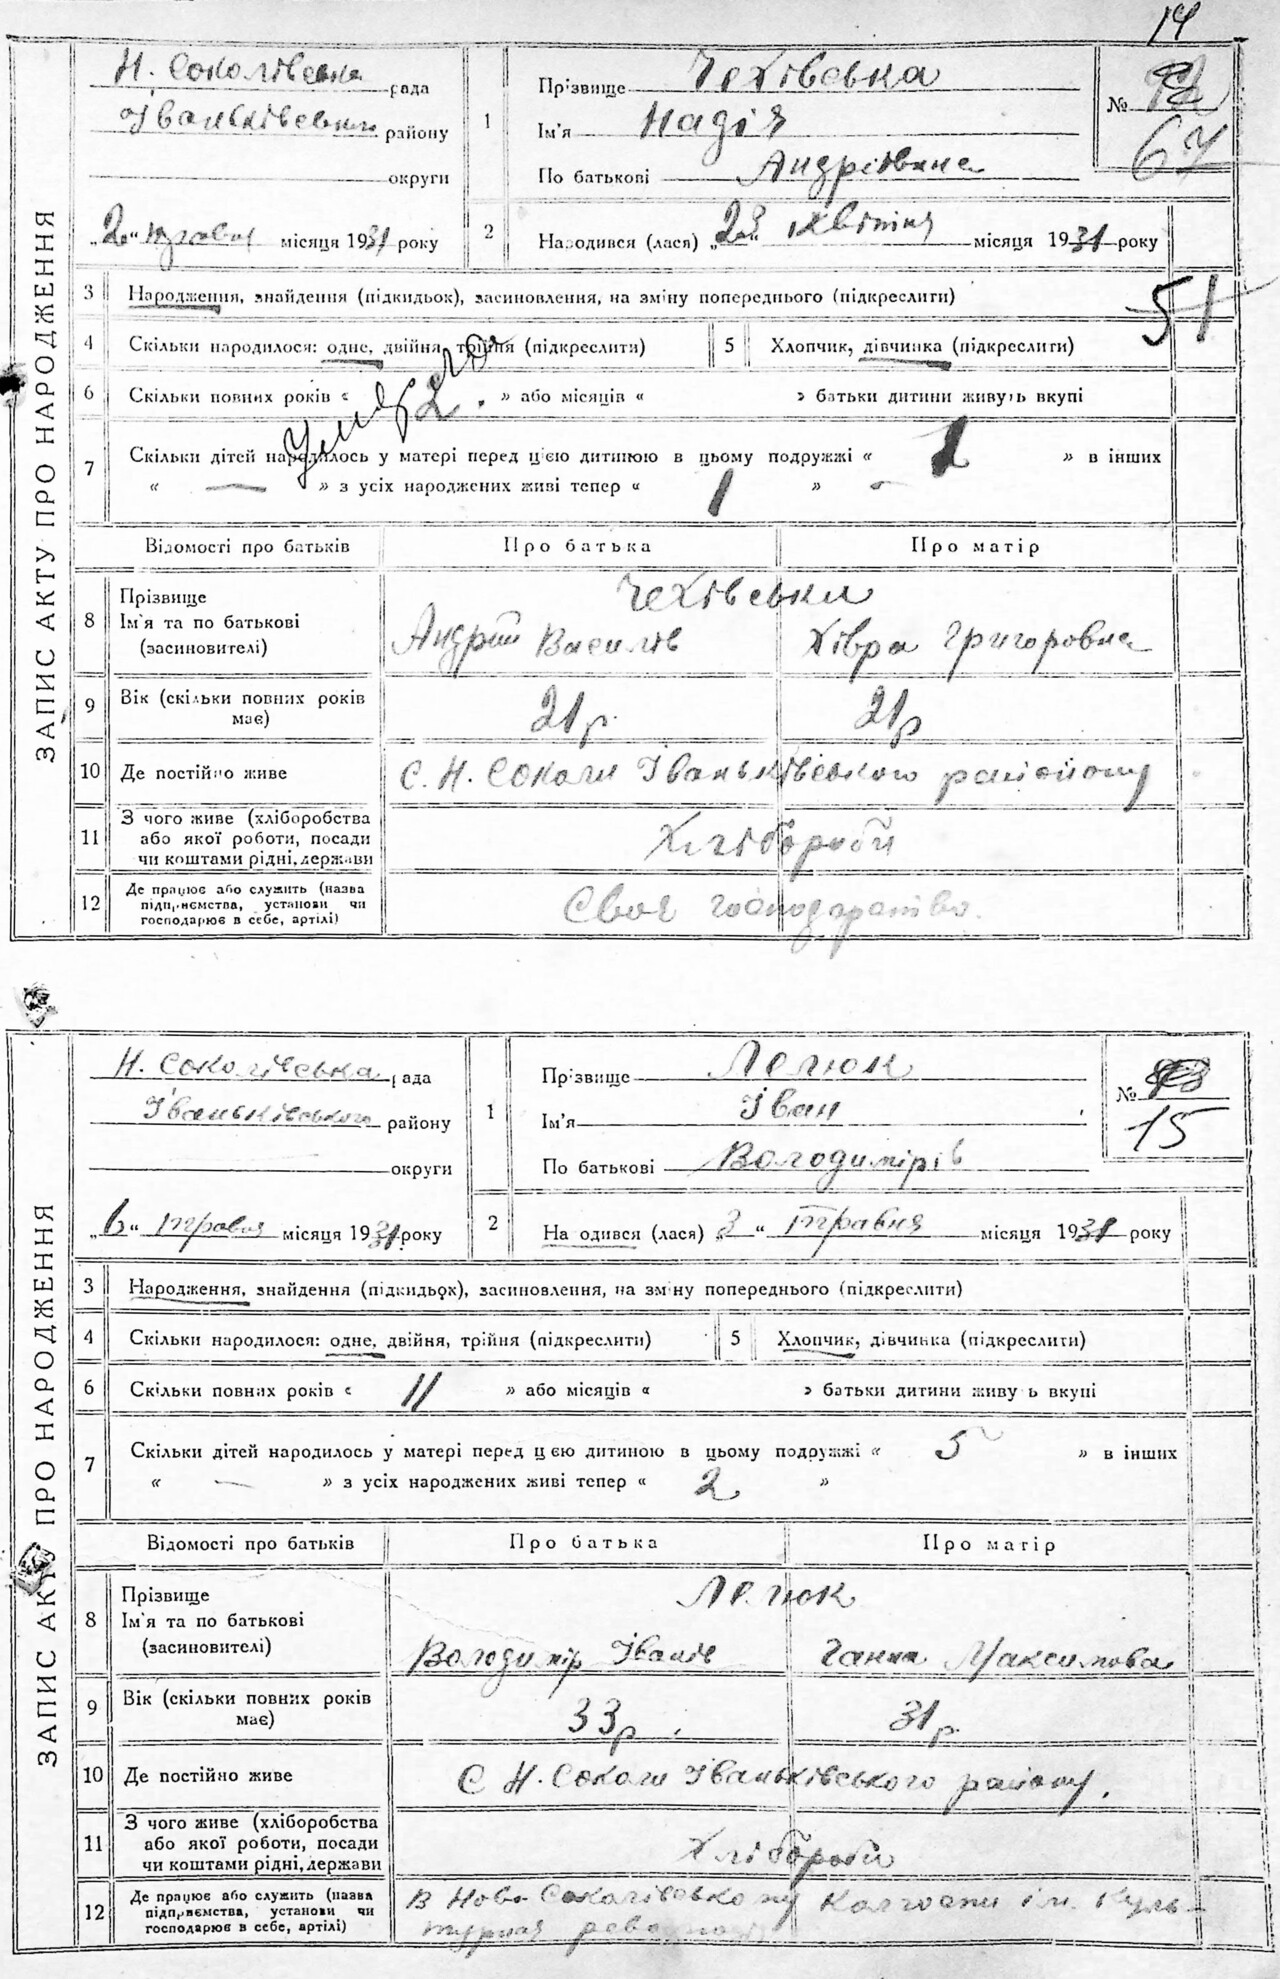 14
ЗАПИС АКТУ ПРО НАРОДЖЕННЯ
Н. Соколівська рада
Іваньківського району
округи
„2“ травня місяця 1931 року
1 Прізвище Чехівська
Ім'я Надія
По батькові Андріївна
№
67
2 Народився (лася) „28“ квітня місяця 1931 року
51
3 Народження, знайдення (підкидьок), засиновлення, на зміну попереднього (підкреслити)
4 Скільки народилося: одне, двійня, трійня (підкреслити) 5 Хлопчик, дівчинка (підкреслити)
6 Скільки повних років « 2 » або місяців « » батьки дитини живуть вкупі
7 Скільки дітей народилось у матері перед цією дитиною в цьому подружжі « 1 » в інших
« — » з усіх народжених живі тепер « 1 » -
Відомості про батьків Про батька Про матір
8 Прізвище Ім'я та по батькові (засиновителі) Чехівськи
Андрій Василів Хівра Григоровна
9 Вік (скільки повних років має) 21р. 21р
10 Де постійно живе С. Н. Соколи Іваньківського районому
11 З чого живе (хліборобства або якої роботи, посади чи коштами рідні, держави Хлібороби
12 Де працює або служить (назва підприємства, установи чи господарює в себе, артілі) Своя господарство.
ЗАПИС АКТУ ПРО НАРОДЖЕННЯ
Н. Соколівська рада
Іваньківського району
округи
„6“ травня місяця 1931 року
1 Прізвище Лелюк
Ім'я Іван
По батькові Володимірів
№
15
2 На одився (лася) „3“ травня місяця 1931 року
3 Народження, знайдення (підкидьох), засиновлення, на зміну попереднього (підкреслити)
4 Скільки народилося: одне, двійня, трійня (підкреслити) 5 Хлопчик, дівчинка (підкреслити)
6 Скільки повних років « 11 » або місяців « » батьки дитини живу ь вкупі
7 Скільки дітей народилось у матері перед цією дитиною в цьому подружжі « 5 » в інших
« — » з усіх народжених живі тепер « 2 »
Відомості про батьків Про батька Про матір
8 Прізвище Ім'я та по батькові (засиновителі) Лелюк
Володимір Іванів Ганна Максимова
9 Вік (скільки повних років має) 33р. 31р.
10 Де постійно живе С Н. Соколи Іваньківського району.
11 З чого живе (хліборобства або якої роботи, посади чи коштами рідні, держави Хлібороби
12 Де працює або служить (назва підприємства, установи чи господарює в себе, артілі) В Ново Соколівському Колгоспи ім. Куль-
турная